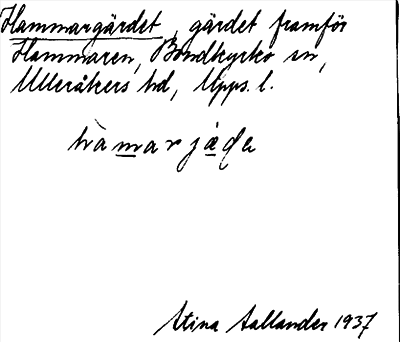 Hammargärdet, gärdet framför
Hammaren, Bondkyrko sn,
Ulleråkers hd, Upps. l.
hamarjäḍe
Stina Sallander 1937